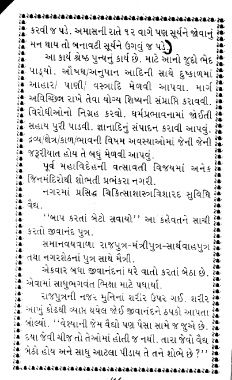 કરવી જ પડે. અમાસની રાતે ૧૨ વાગે પણ સૂર્યને જોવાનું
મન થાય તો બનાવટી સૂર્યને ઉગવું જ પડે
આ કાર્ય શ્રેષ્ઠ પુન્યનું કાર્ય છે. માટે આનો જુદો ભેદ
પાડ્યો. ઔષધ/અનુપાન આદિની સાથે દુષ્કાળમાં
આહાર/ પાણી/ વસ્ત્રાદિ મેળવી આપવા. માર્ગ
અવિચ્છિન્ન રાખે તેવા યોગ્ય શિષ્યની સંપ્રાપ્તિ કરાવવી.
વિરોધીઓનો નિગ્રહ કરવો. ધર્મપ્રભાવનામાં જોઈતી
સહાય પુરી પાડવી. જ્ઞાનાદિનું સંપાદન કરાવી આપવું.
દ્રવ્ય/ક્ષેત્ર/કાળ/ભાવની વિષમ અવસ્થાઓમાં જેની જેની
જરૂરીયાત હોય તે બધું મેળવી આપવું.
પૂર્વ મહાવિદેહની વત્સાવતી વિજયમાં અનેક
જિનમંદિરોથી શોભતી પ્રભંકરા નગરી.
નગરમાં પ્રસિદ્ધ ચિકિત્સાશાસ્ત્રવિશારદ સુવિધિ
વૈદ્ય.
“બાપ કરતાં બેટો સવાયો” આ કહેવતને સાચી
કરતાં જીવાનંદ પુત્ર.
સમાનવયવાળા રાજપુત્ર-મંત્રીપુત્ર-સાર્થવાહપુત્ર
તથા નગરશેઠનાં પુત્ર સાથે મૈત્રી.
એકવાર બધા જીવાનંદનાં ઘરે વાતો કરતાં બેઠા છે.
એવામાં સાધુભગવંત ભિક્ષા માટે પધાર્યા.
રાજપુત્રની નજર મુનિનાં શરીર ઉપર ગઈ. શરીર
આખું કોઢથી વ્યાપ્ત થયેલ જોઈ જીવાનંદને ઠપકો આપતા
બોલ્યો. “વેશ્યાની જેમ વૈદ્યો પણ પૈસા સામે જ જુએ છે.
દયા જેવી ચીજ તો તેઓમાં હોતી જ નથી. તારા જેવો વૈદ્ય
બેઠો હોય અને સાધુ આટલા પીડાય તે તને શોભે છે ?”